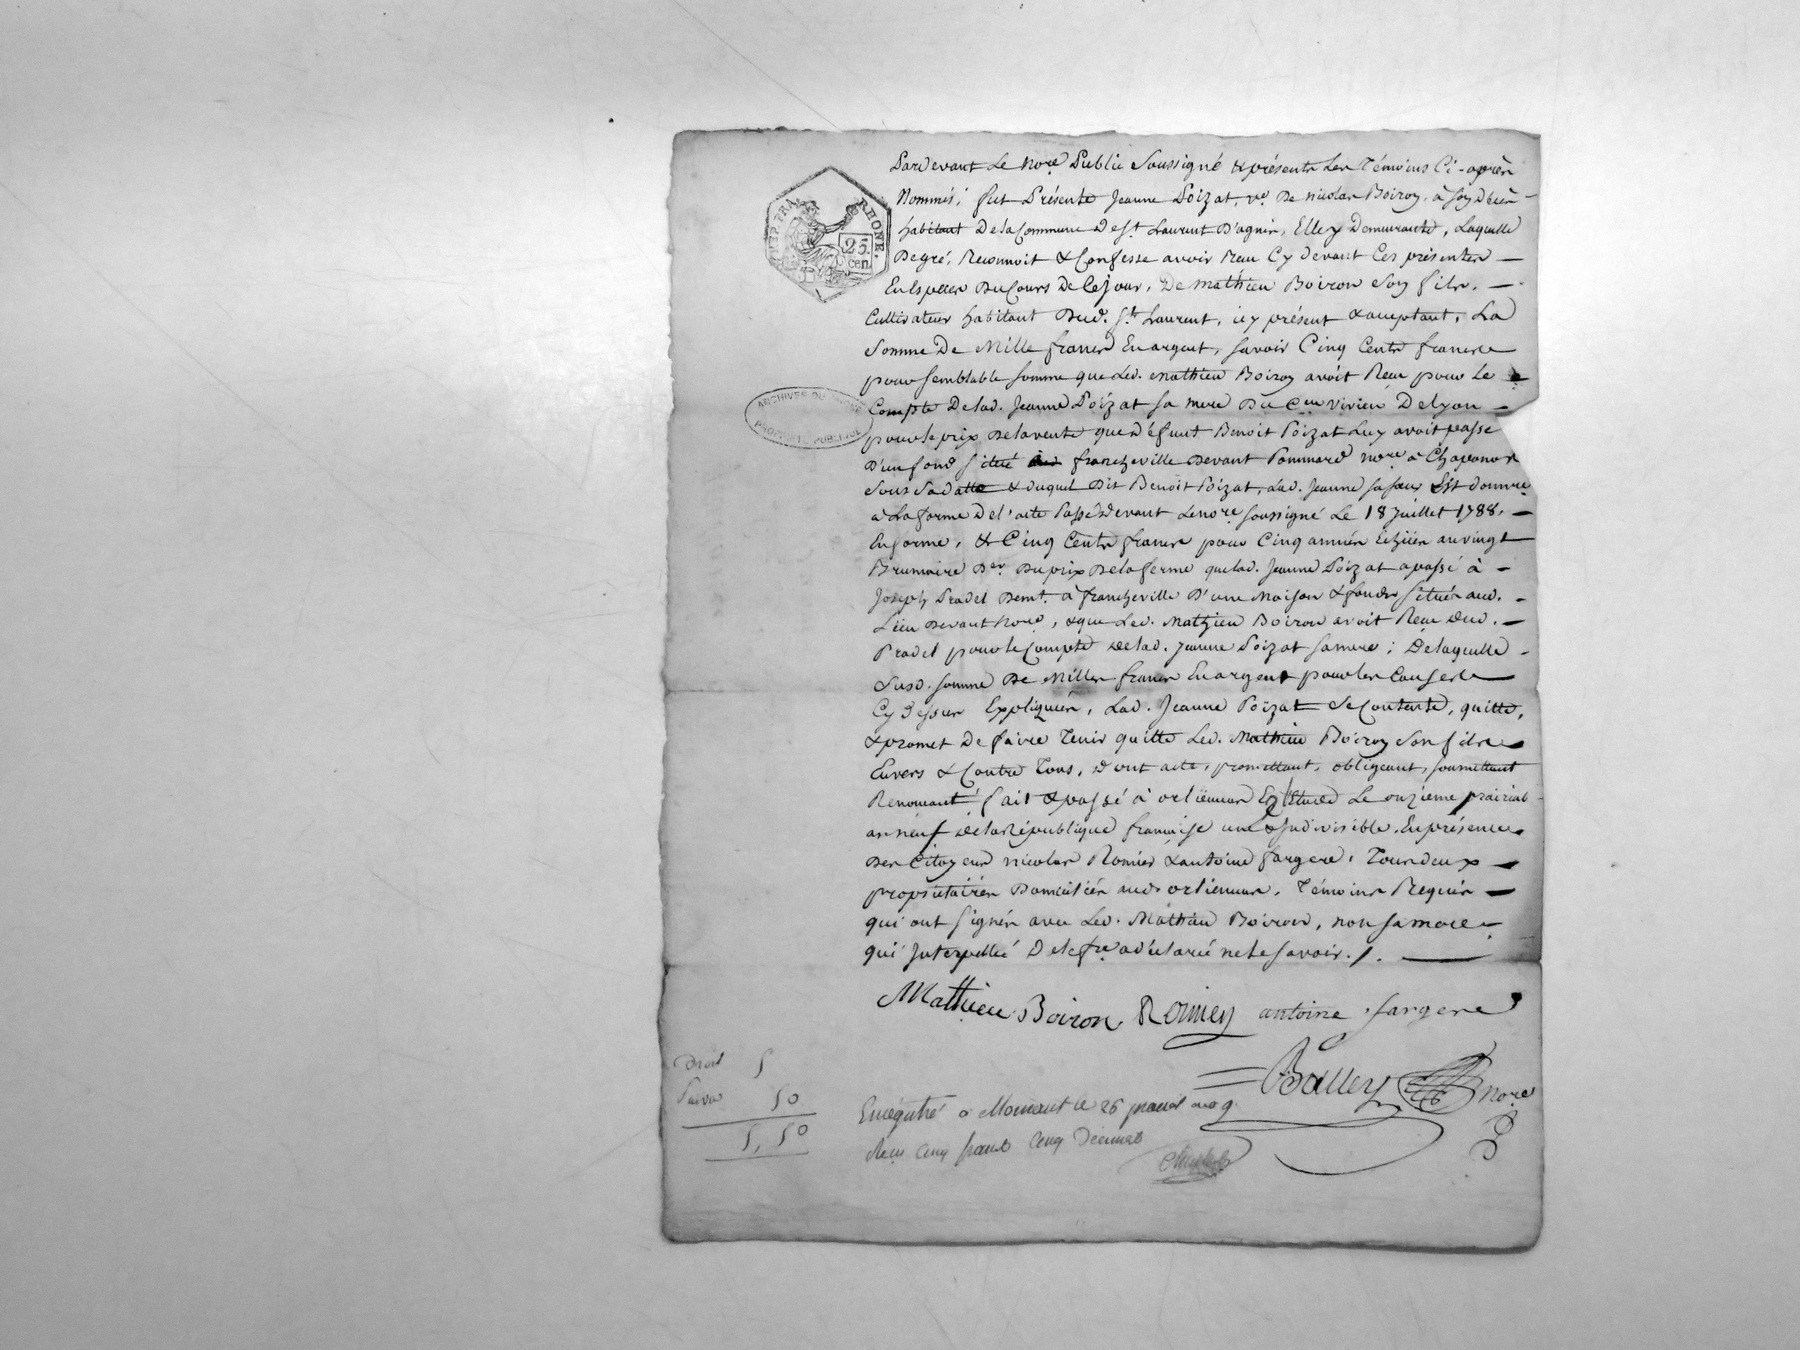 Pardevant Le Nore. Public Soussigné & présents les Témoins Ci-après
Nommés, fut Présente Jeanne Poizat, ve. De nicolas Boiron, à son Décès
habitant De la Commune de St. Laurent D'agnin, Elle y Demeurante, Laquelle
De gré, Reconnoit & Confesse avoir Reçu Cy devant Ces présentes —
En Espèces Du Cours De Ce jour, De Mathieu Boiron Son fils, —
Cultivateur habitant Dud. St. Laurent, icy présent & acceptant, La
Somme De Mille francs En argent, savoir Cinq Cents francs
pour semblable somme que Led. Mathieu Boiron avoit Reçu pour Le
Compte De lad. Jeanne Poizat sa mere Du Cen. Vivien De lyon —
pour le prix De la vente que Défunt Benoit Poizat Luy avoit passé
D'un fond situé francheville Devant Pommard nore. à Chaponost
Sous Sa Datte & duquel Dit Benoit Poizat, lad. Jeanne sa sœur Est donnre.
à La forme De l'acte Passé Devant Le nore. soussigné Le 18 Juillet 1788, —
En forme, & Cinq Cents francs pour Cinq années Echües au vingt
Brumaire Der. Du prix De la ferme que lad. Jeanne Poizat a passé à —
Joseph Pradel Demt. à francheville D'une Maison & fonds situés aud. —
Lieu Devant Nous, & que Led. Mathieu Boiron avoit Reçu Dud. —
Pradel pour le Compte De lad. Jeanne Poizat sa mere; De laquelle —
Susd. somme De Milles francs En argent pour les Causes
Cy Dessus Expliquées, Lad. Jeanne Poizat Se Contente, quitte,
& promet De faire Tenir quitte Led. Mathieu Boiron Son fils
Envers & Contre Tous, Dont acte, promettant, obligeant, soumettant
Renonçant fait & passé à orlienas En Etude Le onzieme prairial
an neuf De la République française une & Indivisible, En présence
Des Citoyens nicolas Romier & antoine fargere, Tous deux —
propriétaires Domiciliés aud. orlienas, Témoins Requis —
qui ont Signés avec Led. Mathieu Boiron, non sa mere —
qui Interpellée De le fre. a déclaré ne le savoir. /. —
Mathieu Boiron Romier antoine fargere
Droit 5
50
5,50
Balley nore
Enregistré à Mornant le 26 prairial an 9
Reçu cinq francs cinq Décimes
REP. FRA. RHONE.
25 cen.
ARCHIVES DU RHONE
PROPRIÉTÉ PUBLIQUE